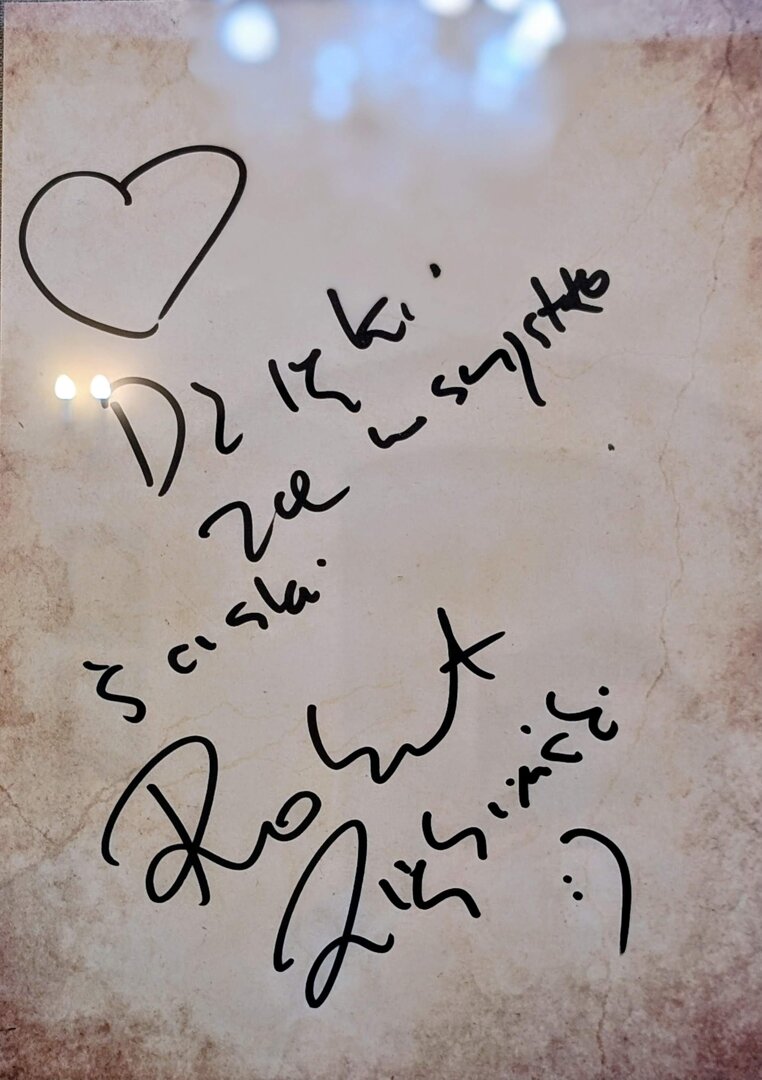 Dzięki
za wszystko
Ściski
Robert
Ziębiński
:)